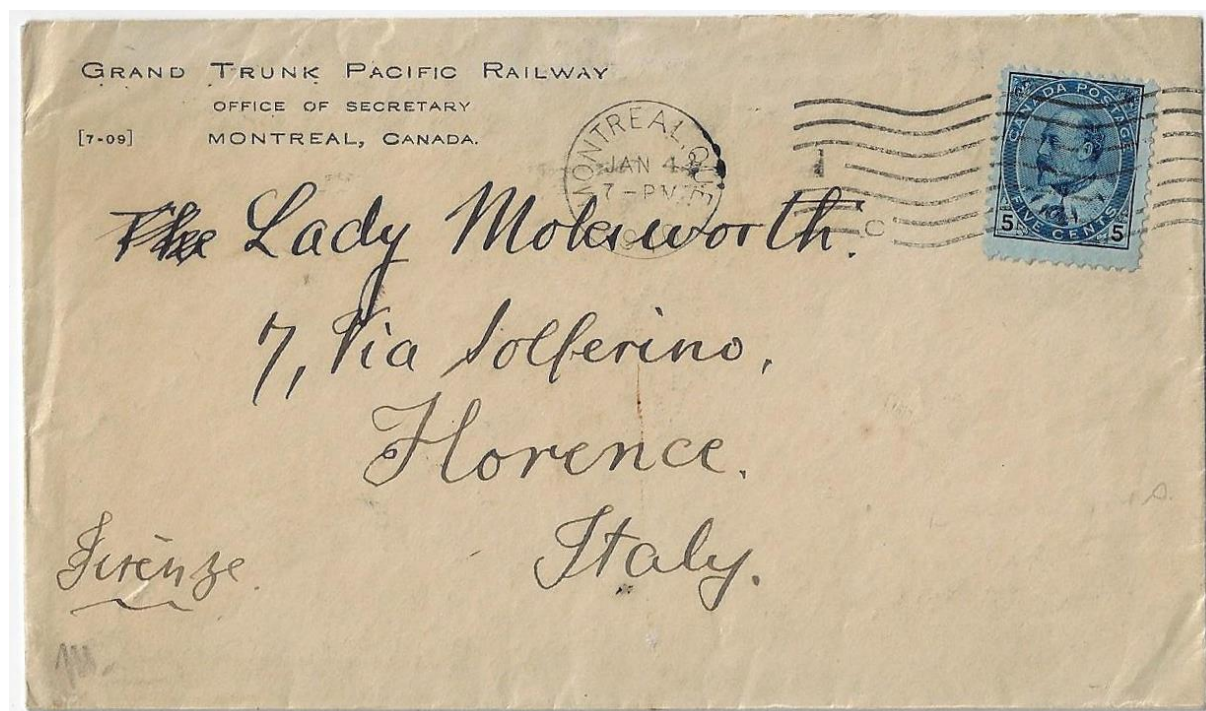 GRAND TRUNK PACIFIC RAILWAY
OFFICE OF SECRETARY
[7-09] MONTREAL, CANADA.
MONTREAL, QUE
JAN 4
7-PM
CANADA POSTAGE
FIVE CENTS
5 5
The Lady Molesworth.
7, Via Solferino,
Florence.
Italy.
Firenze.